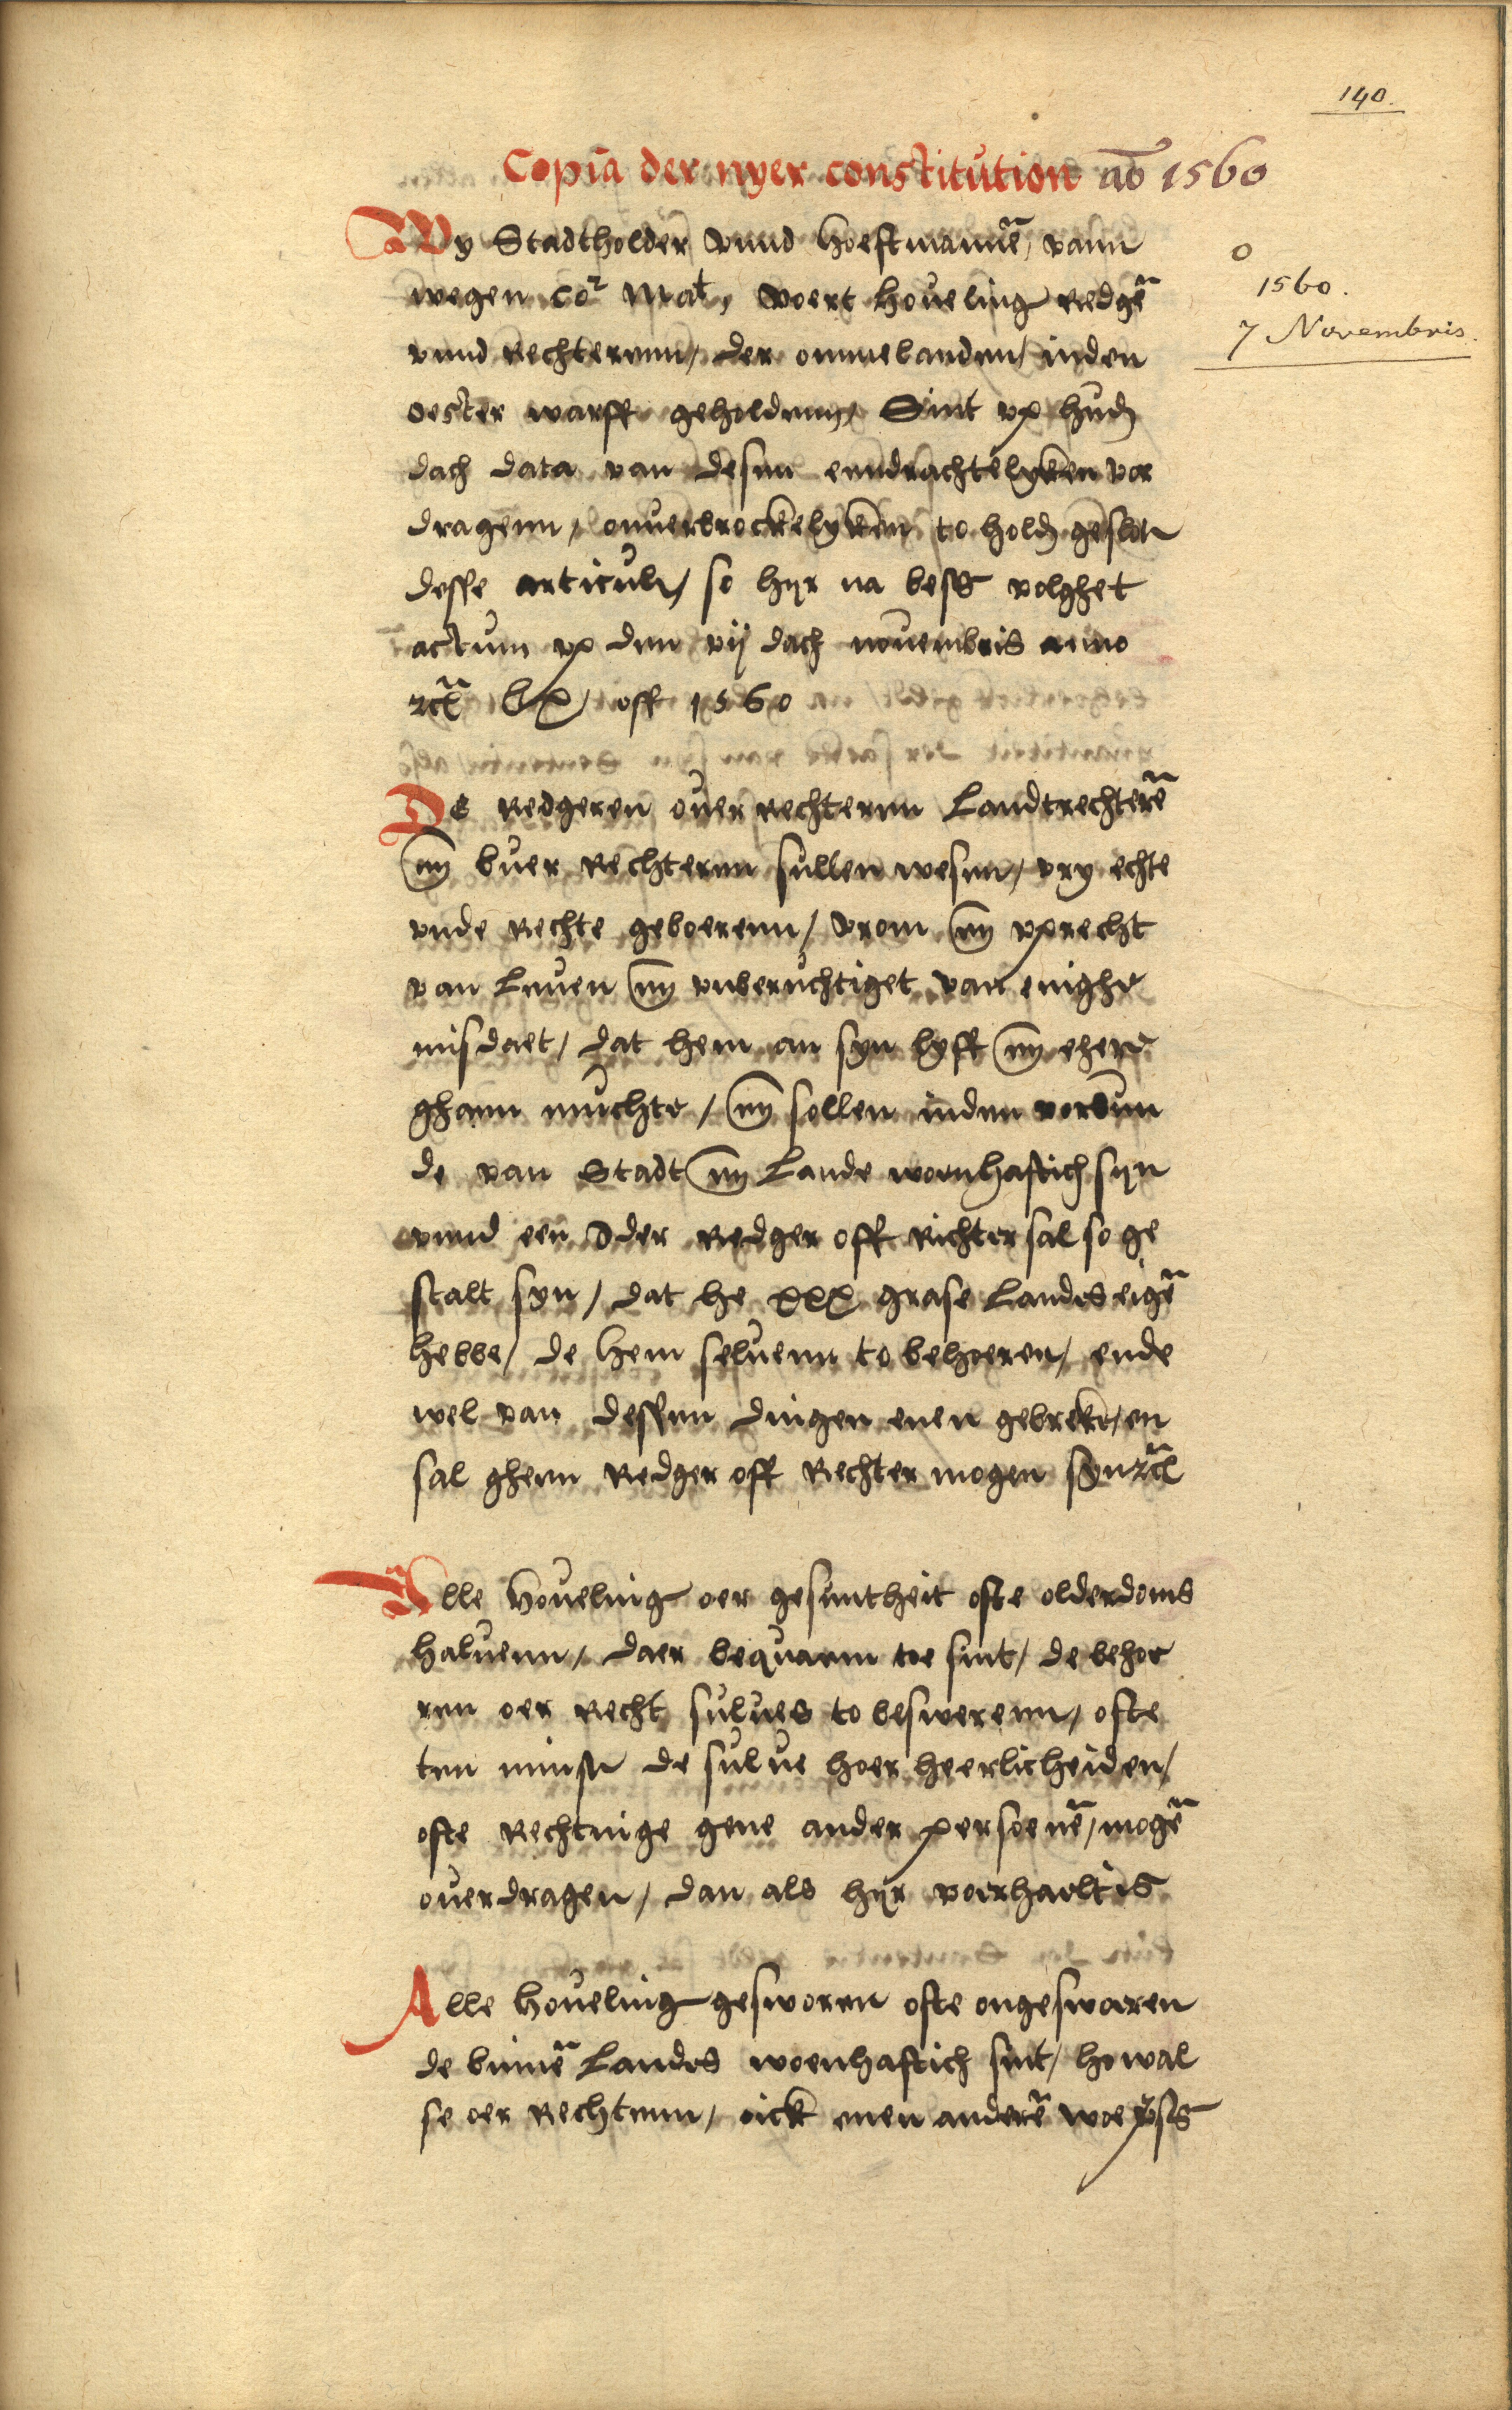 140.
Copia der nyer constitution ao 1560
Wy Stadtholder vnnd Hoeftmannē, vann
wegen Cor Mat, voert houeling Redgē
vnnd Rechterenn, der ommelanden, inden
oester warff geholdenn, Sint vp hudē
dach data van desenn enndrachtelyken vor
dragenn, onuerbrockelyken to hold geslotē
desse articule, so hyr na besß volghet
actum vp den vij dach nouembris anno
rcȝ LX, off 1560
o
1560.
7 Novembris.
De Redgeren ouer Rechterenn Landtrechterē
vn buer Rechterenn sullen wesenn, vry echte
vnde Rechte geboerenn, vrom vn vprecht
van leuen vn vnberuchtiget van enighe
misdaet, dat hem an syn lyff vn ehere
ghaen muchte, vn sollen inden vorbun
de van Stadt vn Lande woenhaftich syn
vnnd een Ider Redger off Richter sal so ge
stalt syn, dat he xxx grase Landes eigē
hebbe, de hem seluenn to behoeren, ende
wel van dessenn dingen enen gebreke, en
sal gheen Redger off Rechter mogen syn rcȝ
Alle houeling oer gesuntheit ofte olderdoms
haluenn, daer bequaem toe sint, de behoe
ren oer Recht sulues to beswerenn, ofte
ten minstē de sulue hoer heerlicheiden,
ofte Rechtinge gene ander persoenē, mogē
ouerdragen, dan als hyr voerhaelt is
Alle houeling gesworen ofte ongeswaren
de binnē Landes woenhaftich sint, howal
se oer Rechtenn, oick enen anderē woe